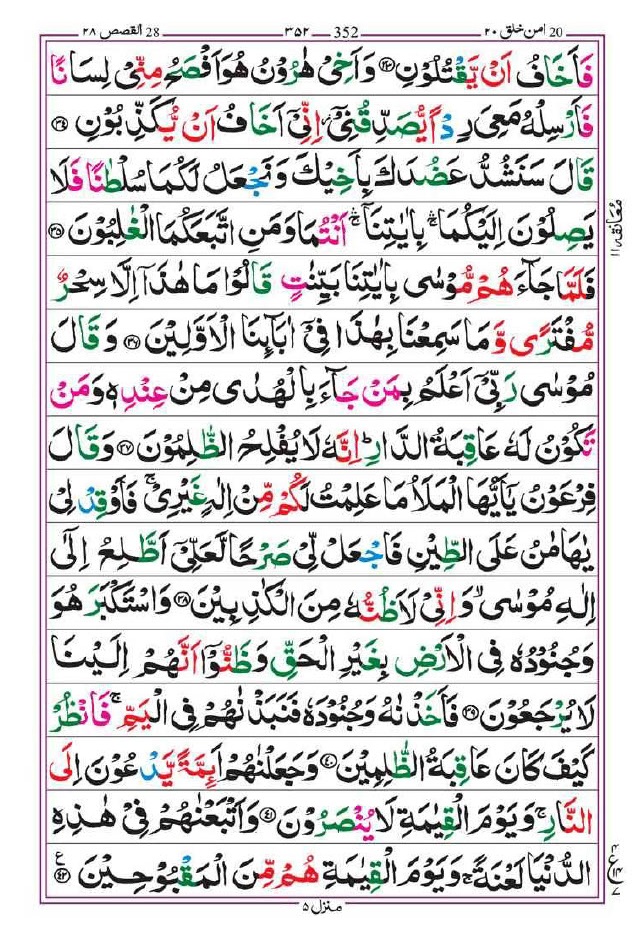 20 امن خلق ۲۰ 352 ۳۵۲ 28 القصص ۲۸
فَاَخَافُ اَنْ يَّقْتُلُوْنِ ﴿۳۳﴾ وَاَخِىْ هٰرُوْنُ هُوَ اَفْصَحُ مِنِّىْ لِسَانًا
فَاَرْسِلْهُ مَعِىَ رِدْاً يُّصَدِّقُنِىْۤ ؗ اِنِّىْۤ اَخَافُ اَنْ يُّكَذِّبُوْنِ ﴿۳۴﴾
قَالَ سَنَشُدُّ عَضُدَكَ بِاَخِيْكَ وَنَجْعَلُ لَكُمَا سُلْطٰنًا فَلَا
يَصِلُوْنَ اِلَيْكُمَا ۛۚ بِاٰيٰتِنَاۤ ۛۚ اَنْتُمَا وَمَنِ اتَّبَعَكُمَا الْغٰلِبُوْنَ ﴿۳۵﴾
معانقه ۱۱
فَلَمَّا جَآءَ هُمْ مُّوْسٰى بِاٰيٰتِنَا بَيِّنٰتٍ قَالُوْا مَا هٰذَاۤ اِلَّا سِحْرٌ
مُّفْتَرًى وَّ مَا سَمِعْنَا بِهٰذَا فِىْۤ اٰبَآئِنَا الْاَوَّلِيْنَ ﴿۳۶﴾ وَقَالَ
مُوْسٰى رَبِّىْۤ اَعْلَمُ بِمَنْ جَآءَ بِالْهُدٰى مِنْ عِنْدِهٖ وَمَنْ
تَكُوْنُ لَهٗ عَاقِبَةُ الدَّارِ ؕ اِنَّهٗ لَا يُفْلِحُ الظّٰلِمُوْنَ ﴿۳۷﴾ وَقَالَ
فِرْعَوْنُ يٰۤاَيُّهَا الْمَلَاُ مَا عَلِمْتُ لَكُمْ مِّنْ اِلٰهٍ غَيْرِىْ ۚ فَاَوْقِدْ لِىْ
يٰهَامٰنُ عَلَى الطِّيْنِ فَاجْعَلْ لِّىْ صَرْحًا لَّعَلِّىْۤ اَطَّلِعُ اِلٰٓى
اِلٰهِ مُوْسٰى ۙ وَاِنِّىْ لَاَظُنُّهٗ مِنَ الْكٰذِبِيْنَ ﴿۳۸﴾ وَاسْتَكْبَرَ هُوَ
وَجُنُوْدُهٗ فِى الْاَرْضِ بِغَيْرِ الْحَقِّ وَظَنُّوْۤا اَنَّهُمْ اِلَيْنَا
لَا يُرْجَعُوْنَ ﴿۳۹﴾ فَاَخَذْنٰهُ وَجُنُوْدَهٗ فَنَبَذْنٰهُمْ فِى الْيَمِّ ۚ فَانْظُرْ
كَيْفَ كَانَ عَاقِبَةُ الظّٰلِمِيْنَ ﴿۴۰﴾ وَجَعَلْنٰهُمْ اَئِمَّةً يَّدْعُوْنَ اِلَى
النَّارِ ۚ وَيَوْمَ الْقِيٰمَةِ لَا يُنْصَرُوْنَ ﴿۴۱﴾ وَاَتْبَعْنٰهُمْ فِىْ هٰذِهِ
الدُّنْيَا لَعْنَةً ۚ وَيَوْمَ الْقِيٰمَةِ هُمْ مِّنَ الْمَقْبُوْحِيْنَ ﴿۴۲﴾ ع
ع ۱۴ ۷
منزل ۵